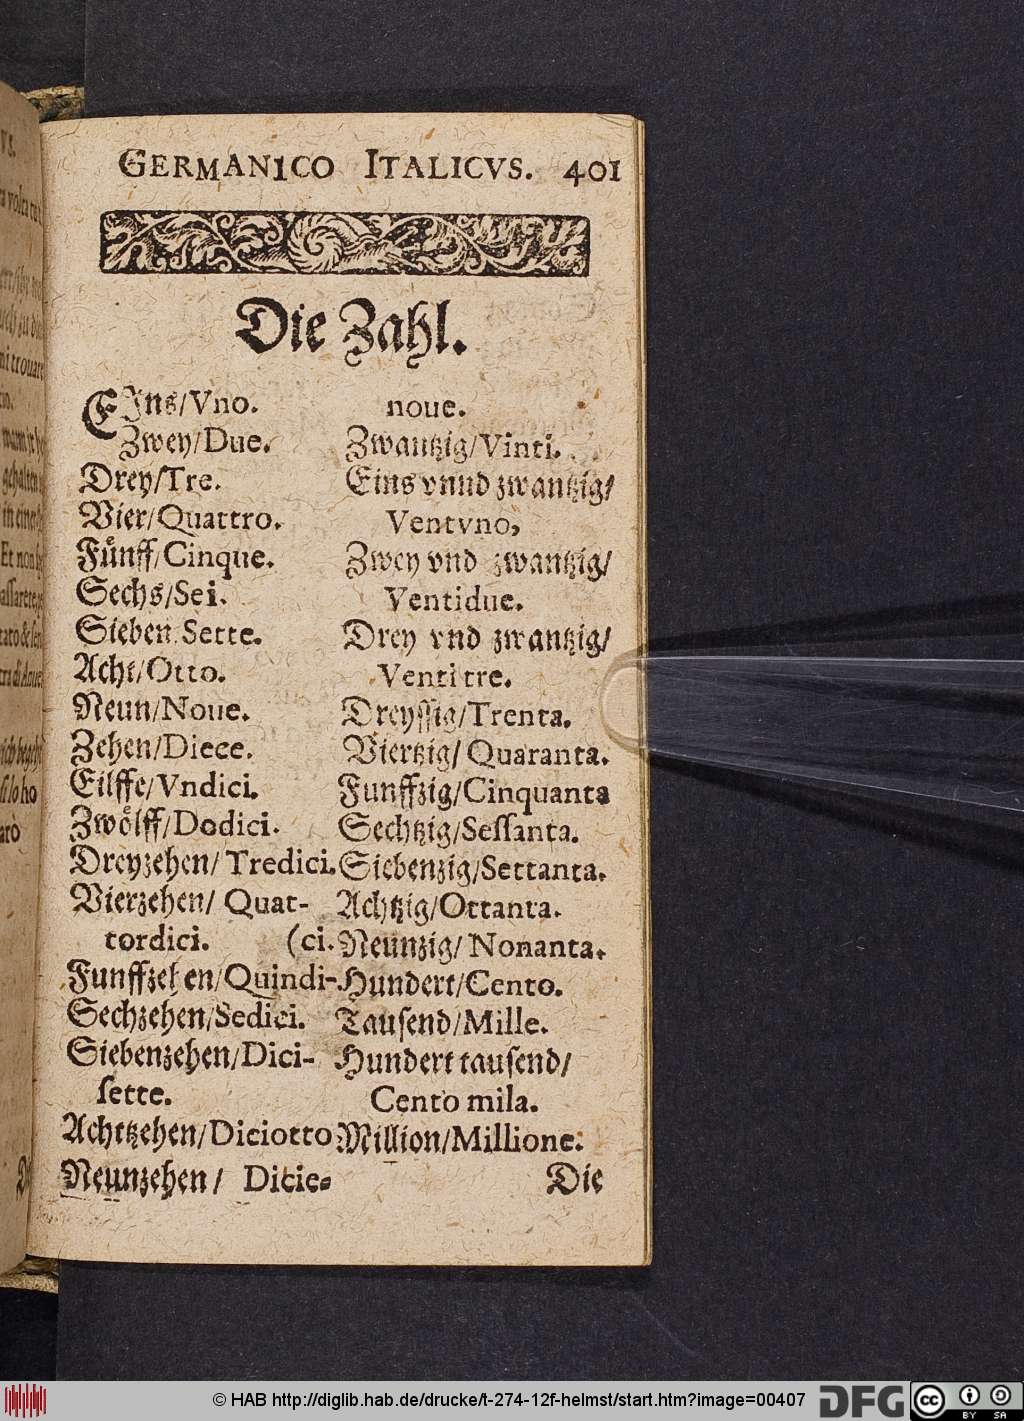 GERMANICO ITALICVS. 401
Die Zahl.
EIns/Vno.
Zwey/Due.
Drey/Tre.
Vier/Quattro.
Fuͤnff/Cinque.
Sechs/Sei.
Sieben Sette.
Acht/Otto.
Neun/Noue.
Zehen/Diece.
Eilffe/Vndici.
Zwoͤlff/Dodici.
Dreyzehen/ Tredici.
Vierzehen/ Quat-
tordici. (ci.
Funffzehen/Quindi-
Sechzehen/Sedici.
Siebenzehen/Dici-
ſette.
Achtzehen/Diciotto
Neunzehen/ Dicie-
noue.
Zwantzig/Vinti.
Eins vnnd zwantzig/
Ventvno,
Zwey vnd zwantzig/
Ventidue.
Drey vnd zwantzig/
Ventitre.
Dreyſſig/Trenta.
Viertzig/ Quaranta.
Funffzig/Cinquanta
Sechtzig/Seſſanta.
Siebenzig/Settanta.
Achtzig/Ottanta.
Neunzig/ Nonanta.
Hundert/Cento.
Tauſend/Mille.
Hundert tauſend/
Cento mila.
Million/Millione.
Die
© HAB http://diglib.hab.de/drucke/t-274-12f-helmst/start.htm?image=00407
DFG
cc BY SA